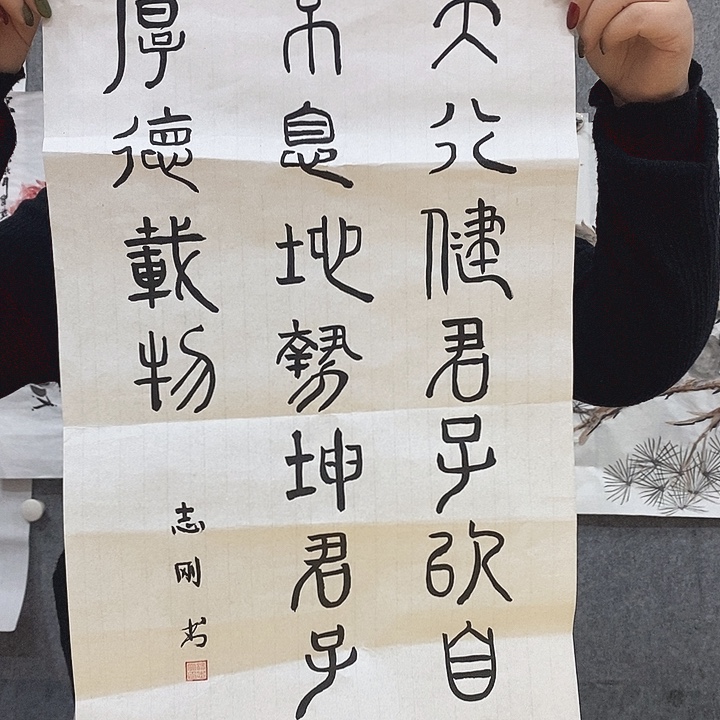 天行健君子以自
不息地勢坤君子
厚德載物
志刚书